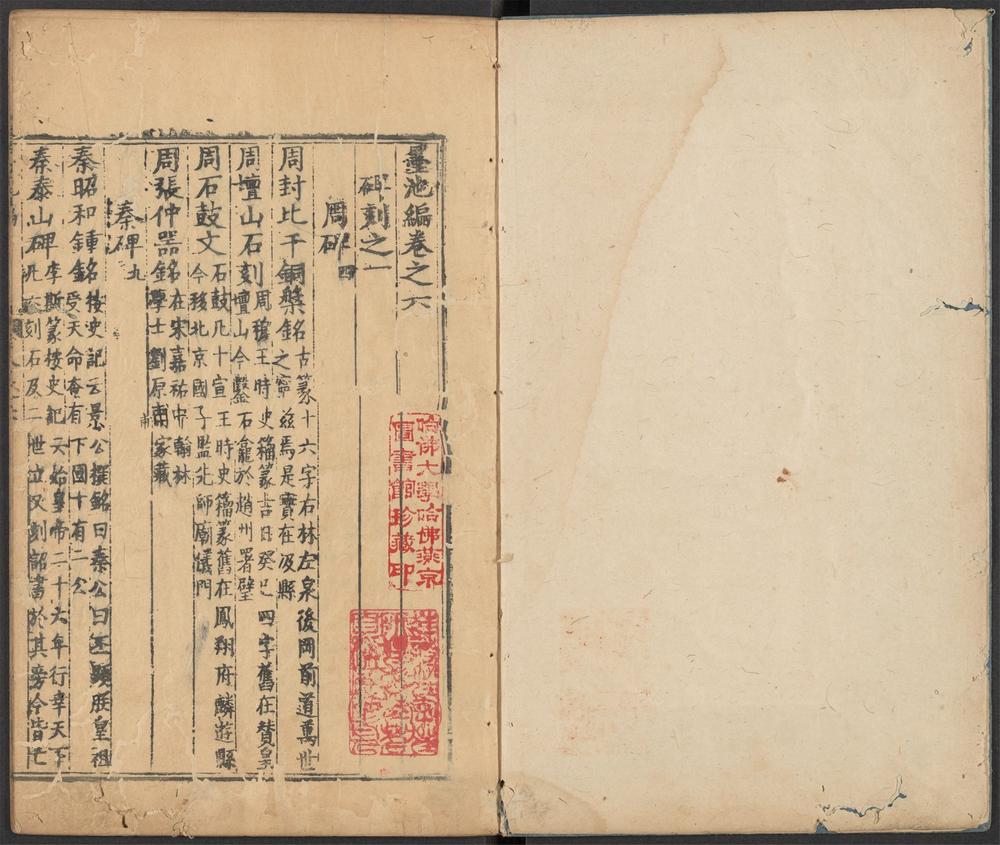 墨池編卷之六
碑刻之一
周碑四
周封比干銅槃銘古篆十六字右林左泉後岡前道萬世
之寧茲焉是寶在汲縣
周壇山石刻周穆王時史籀篆吉日癸巳四字舊在贊皇
壇山今鑿石龕於趙州署壁
周石鼓文石鼓凡十宣王時史籀篆舊在鳳翔府麟遊縣
今移北京國子監先師廟儀門
周張仲器銘在宋嘉祐中翰林
學士劉原甫家藏
秦碑九
秦昭和鍾銘按史記云景公撰銘曰秦公曰丕顯朕皇祖
受天命奄有下國十有二公
秦泰山碑李斯篆按史記云始皇帝二十六年行幸天下
凡六刻石及二世立又刻詔書於其旁今皆亡
哈佛大學哈佛燕京
圖書館珍藏印